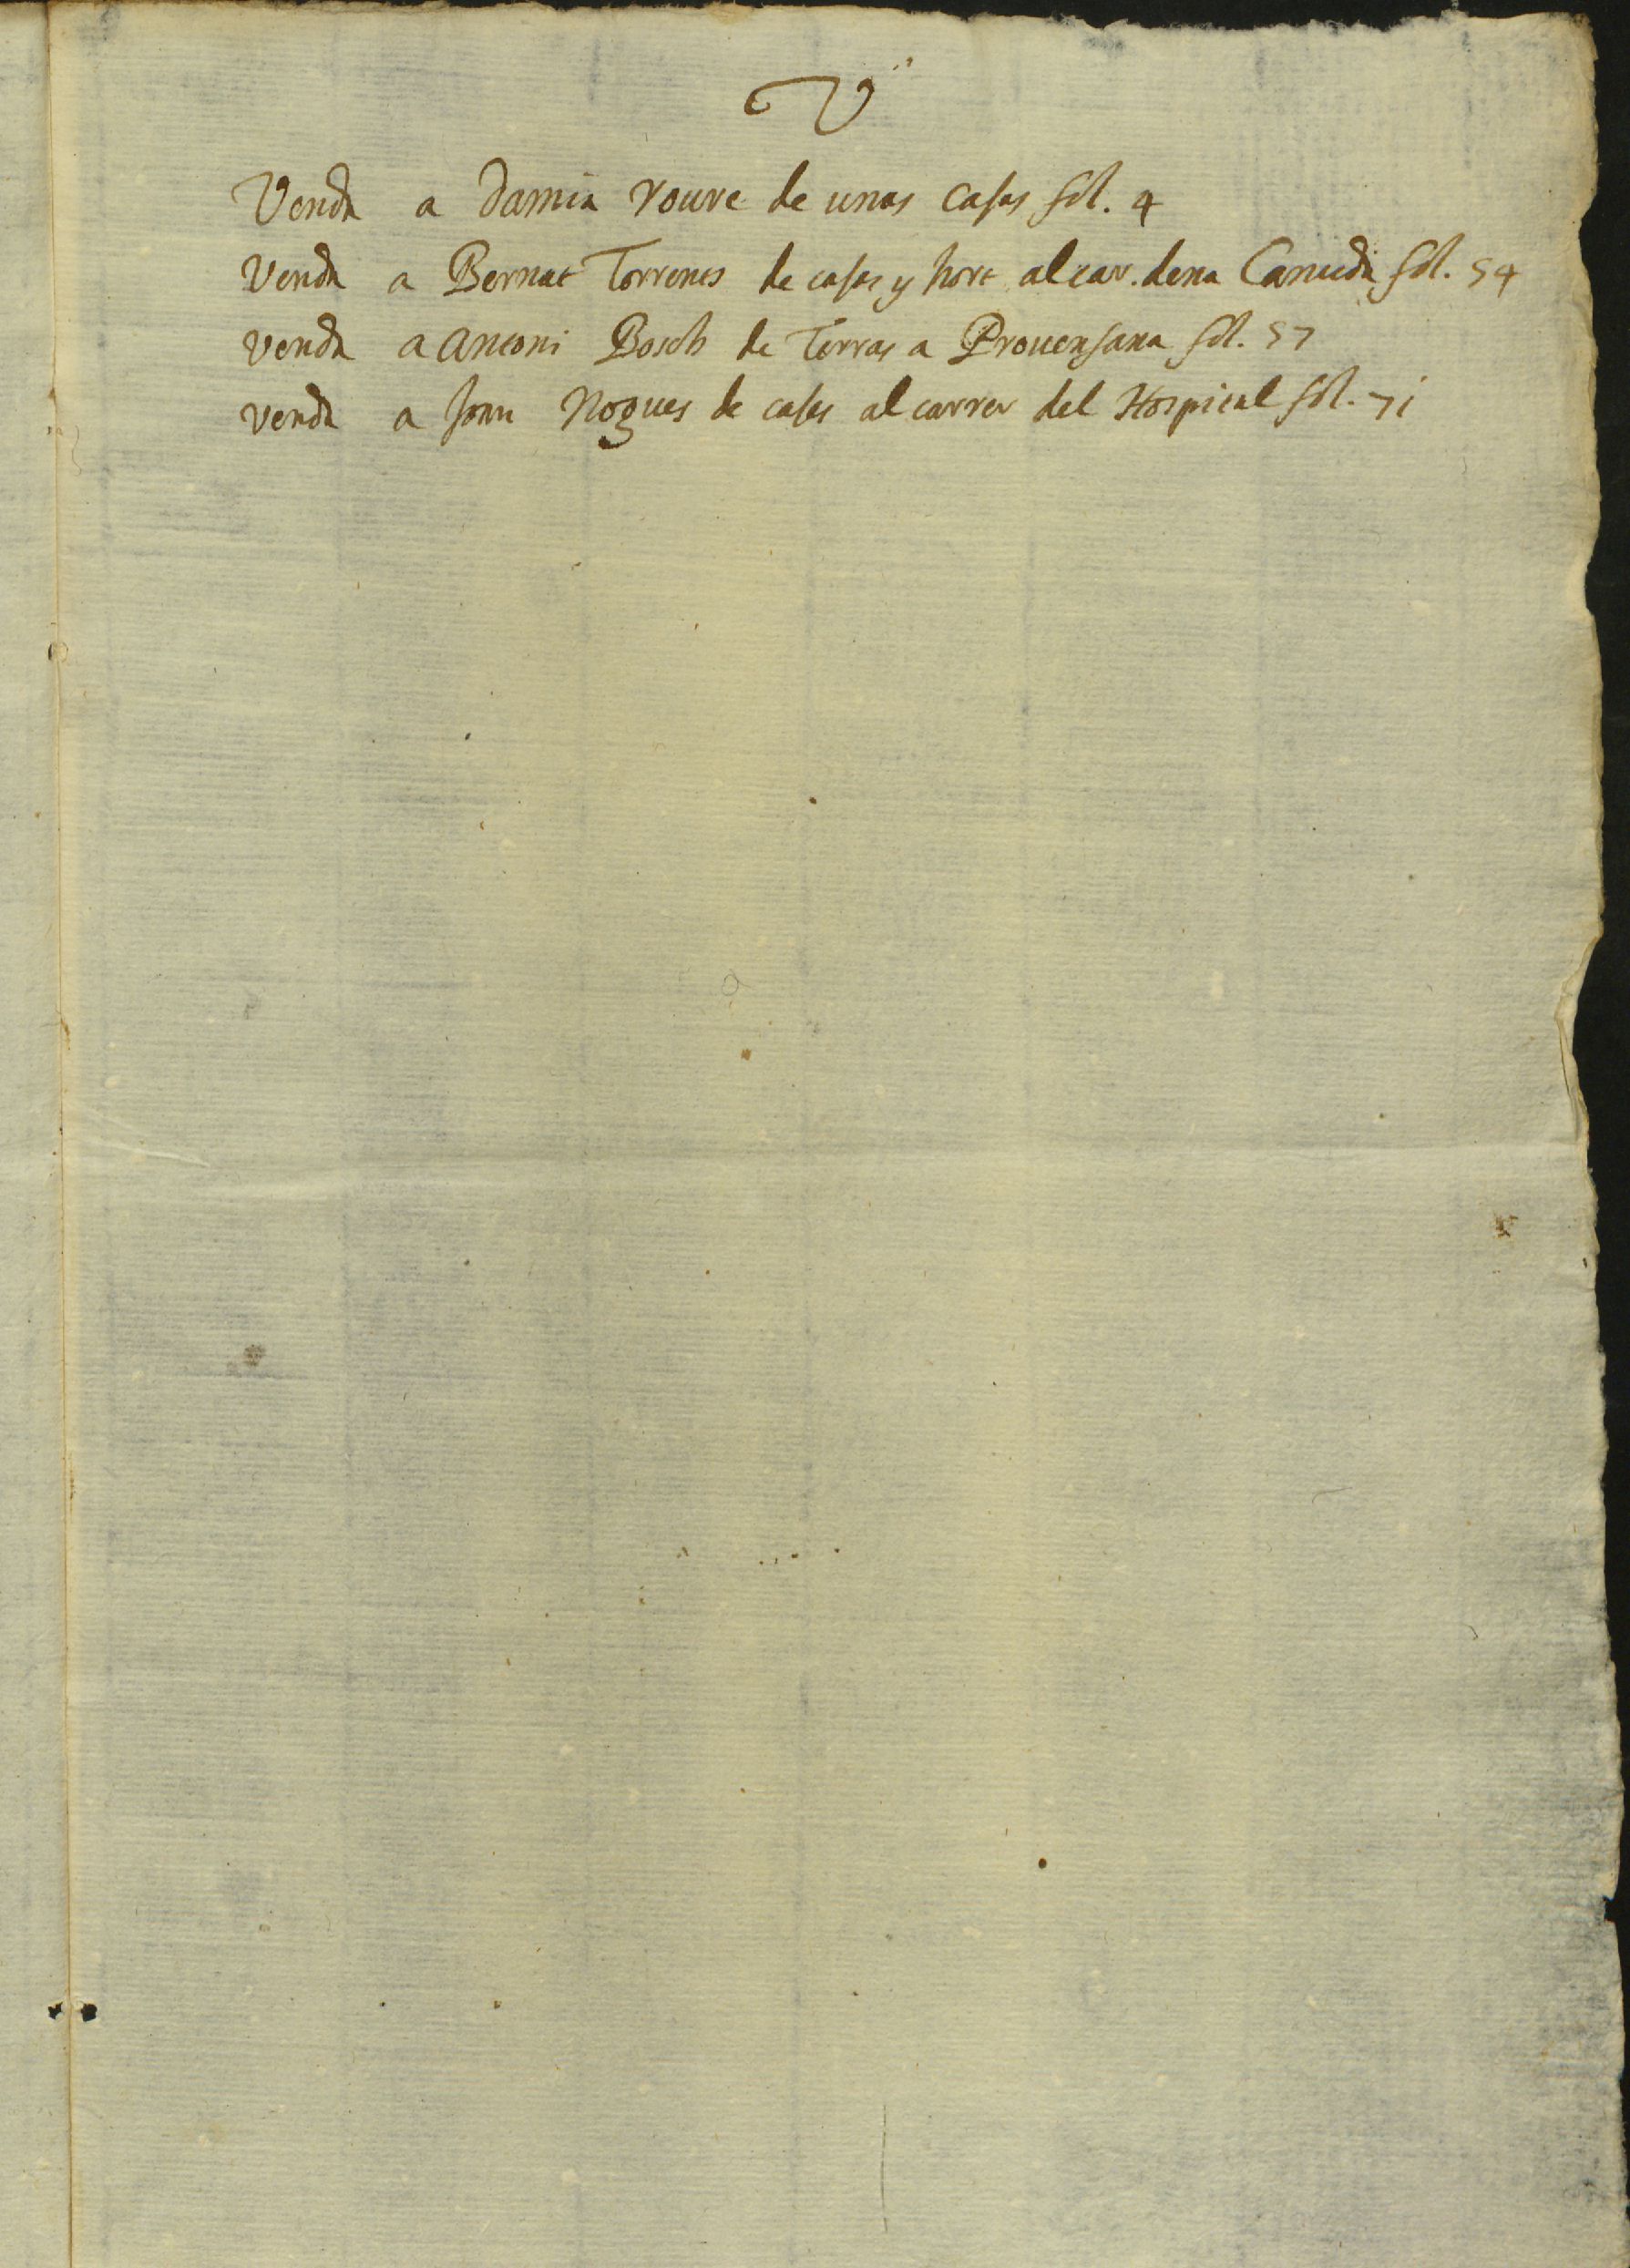 V
Venda a Damia Roure de unas casas fol. 4
Venda a Bernat Torrents de casas y hort al car. dena Canuda fol. 54
Venda a Antoni Bosch de Terras a Prouensana fol. 57
Venda a Joan Nogues de casas al carrer del Hospital fol. 71